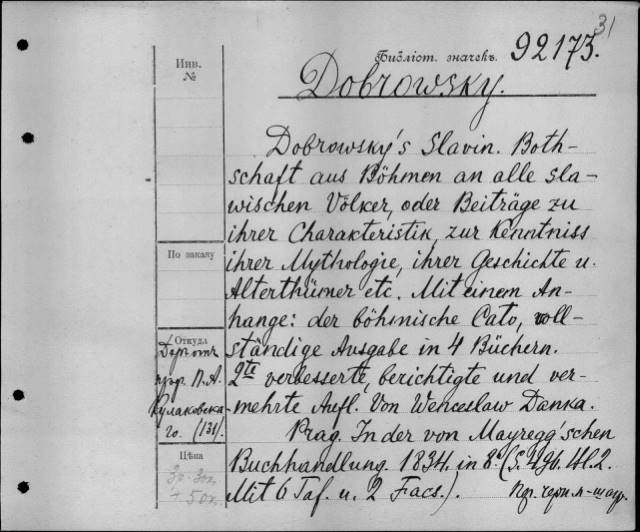 31
Библіот. значекъ. 92173.
Dobrowsky.
Инв.
№
Dobrowsky's Slavin. Both-
schaft aus Böhmen an alle sla-
wischen Völker, oder Beiträge zu
ihrer Charakteristik, zur Kenntniss
ihrer Mythologie, ihrer Geschichte u.
Alterthümer etc. Mit einem An-
hange: der böhmische Cato, voll-
ständige Ausgabe in 4 Büchern.
2te verbesserte, berichtigte und ver-
mehrte Aufl. Von Wenceslaw Danka.
Prag. In der von Mayregg'schen
Buchhandlung. 1834. in 8. (S. 496.
Mit 6 Taf. u. 2 Facs.).
По заказу
Откуда
П. А.
Кулаковска-
го. (131).
Цѣна